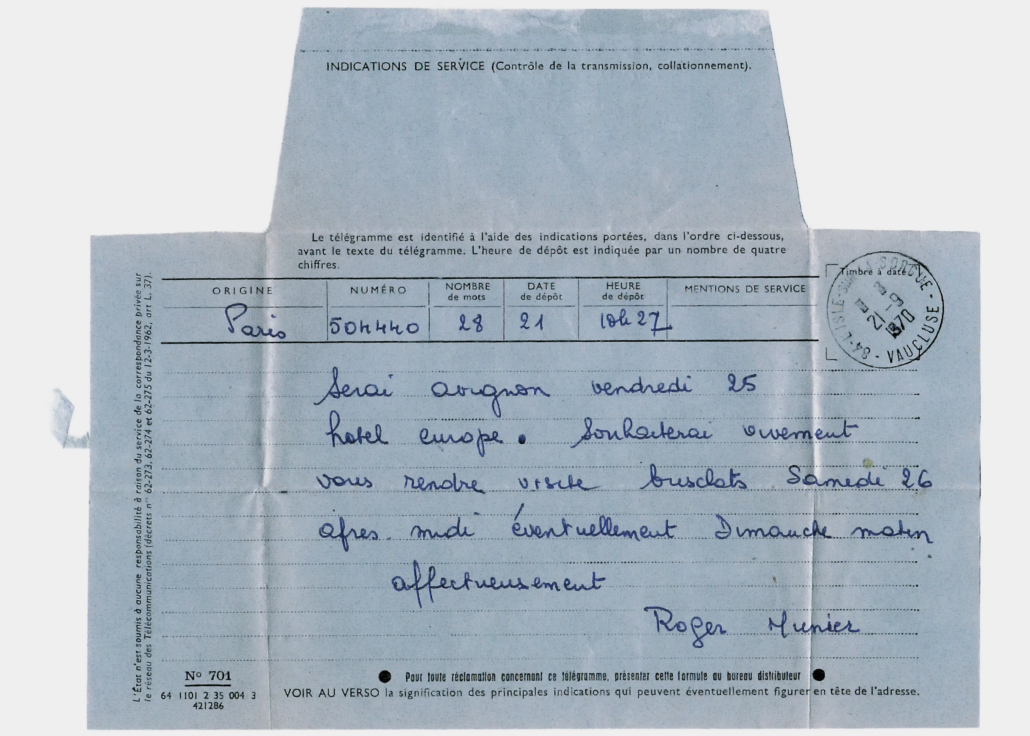 INDICATIONS DE SERVICE (Contrôle de la transmission, collationnement).
Le télégramme est identifié à l'aide des indications portées, dans l'ordre ci-dessous,
avant le texte du télégramme. L'heure de dépôt est indiquée par un nombre de quatre
chiffres.
ORIGINE NUMÉRO NOMBRE de mots DATE de dépôt HEURE de dépôt MENTIONS DE SERVICE Timbre à date
Paris 504440 28 21 10h27
84-L'ISLE-SUR-LA SORGUE - VAUCLUSE
21-9
1970
Serai avignon vendredi 25
hotel europe. Souhaiterai vivement
vous rendre visite busclats Samedi 26
apres midi éventuellement Dimanche matin
affectueusement
Roger Munier
L'État n'est soumis à aucune responsabilité à raison du service de la correspondance privée sur
le réseau des Télécommunications (décrets n° 62-273, 62-274 et 62-275 du 12-3-1962, art L. 37).
N° 701
64 1101 2 35 004 3
421286
Pour toute réclamation concernant ce télégramme, présenter cette formule au bureau distributeur
VOIR AU VERSO la signification des principales indications qui peuvent éventuellement figurer en tête de l'adresse.